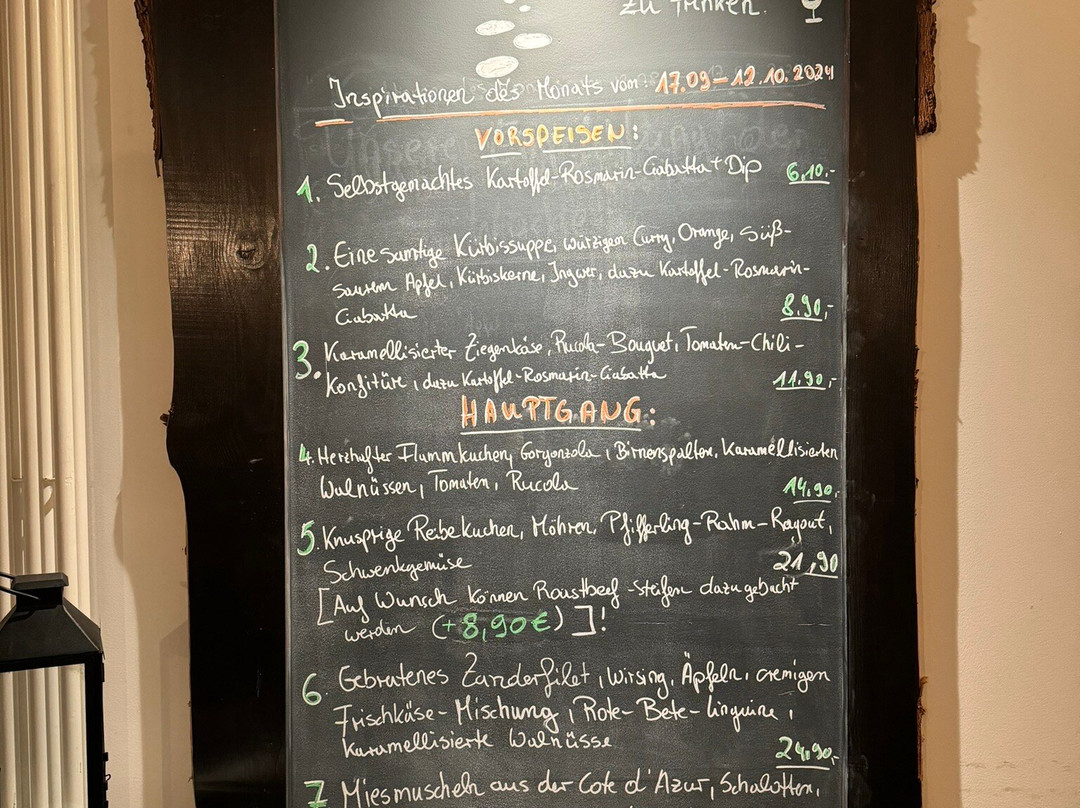 zu trinken.
Inspirationen des Monats vom: 17.09 – 12.10.2024
VORSPEISEN:
1. Selbstgemachtes Kartoffel-Rosmarin-Ciabatta + Dip 6,10.-
2. Eine samtige Kürbissuppe, würzigen Curry, Orange, Süß-
saurem Apfel, Kürbiskerne, Ingwer, dazu Kartoffel-Rosmarin-
Ciabatta 8.90,-
3. Karamellisierter Ziegenkäse, Rucola-Bouquet, Tomaten-Chili-
Konfitüre, dazu Kartoffel-Rosmarin-Ciabatta 11.90,-
HAUPTGANG:
4. Herzhafter Flammkuchen, Gorgonzola, Birnenspalten, Karamellisierten
Walnüssen, Tomaten, Rucola 14,90.-
5. Knusprige Reibekuchen, Möhren, Pfifferling-Rahm-Ragout,
Schwenkgemüse 21,90
[Auf Wunsch können Roastbeef-steifen dazu gebucht
werden (+8,90€)]!
6 Gebratenes Zanderfilet, Wirsing, Äpfeln, cremigen
Frischkäse-Mischung, Rote-Bete-linguine,
Karamellisierte Walnüsse 24,90,-
7 Miesmuscheln aus der Cote d'Azur, Schalotten,